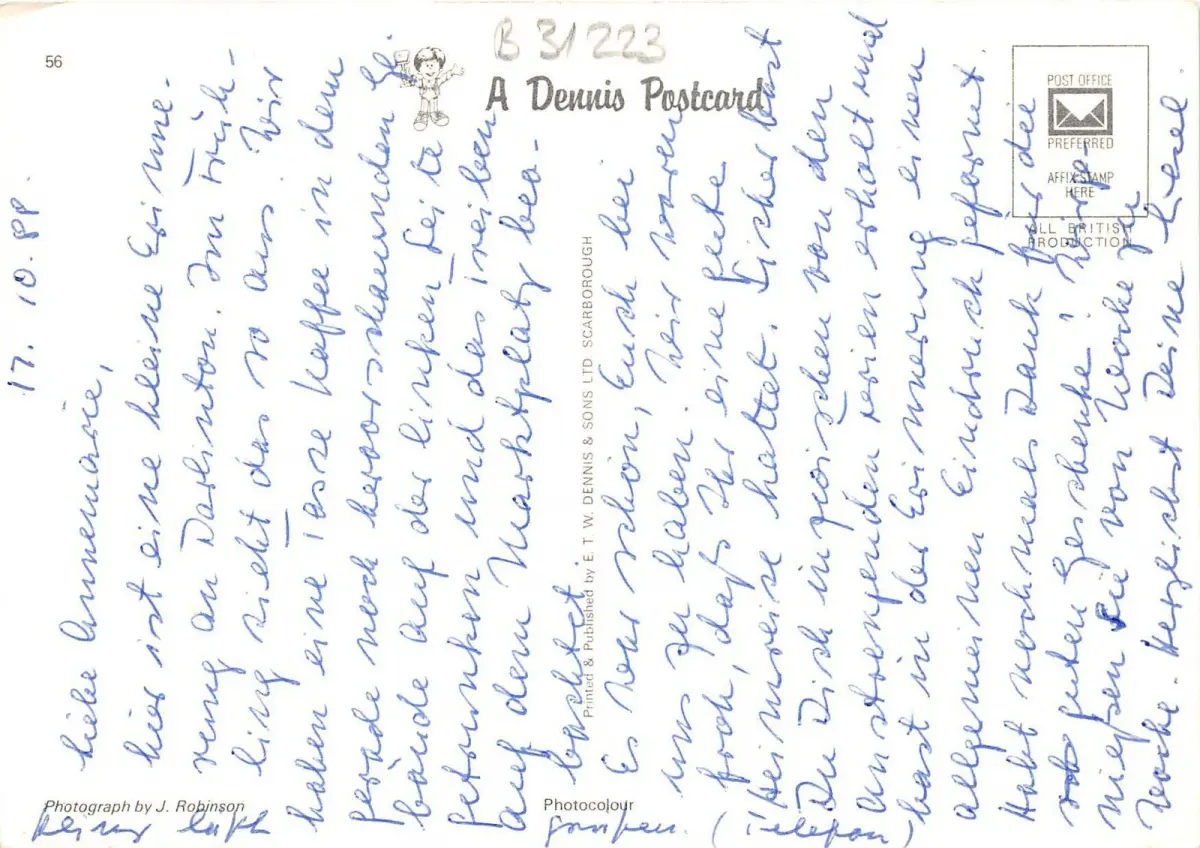 56
B 31223
A Dennis Postcard
POST OFFICE
PREFERRED
AFFIX STAMP
HERE
ALL BRITISH
PRODUCTION
Printed & Published by E. T. W. DENNIS & SONS LTD SCARBOROUGH
Photograph by J. Robinson
Photocolour
17. 10. 88.
Liebe Annemarie,
hier ist eine kleine Erinne-
rung an Darlinton. Im Früh-
ling sieht das so aus. Wir
haben eine Tasse Kaffee in dem
gerade noch hervorschauenden Ge-
bäude auf der linken Seite
getrunken und das Treiben
auf dem Marktplatz beo-
bachtet.
Es war schön, Euch bei
uns zu haben. Wir waren
froh, daß Ihr eine gute
Heimreise hattet. Sicher hast
Du Dich inzwischen von den
anstrengenden Ferien erholt und
hast in der Erinnerung einen
allgemeinen Eindruck geformt.
Habt nochmals Dank für die
guten Geschenke! Wir ge-
nießen sie von Woche zu
Woche. Herzlichst Deine Liesel.
Heinz läßt
grüßen. (Telefon)